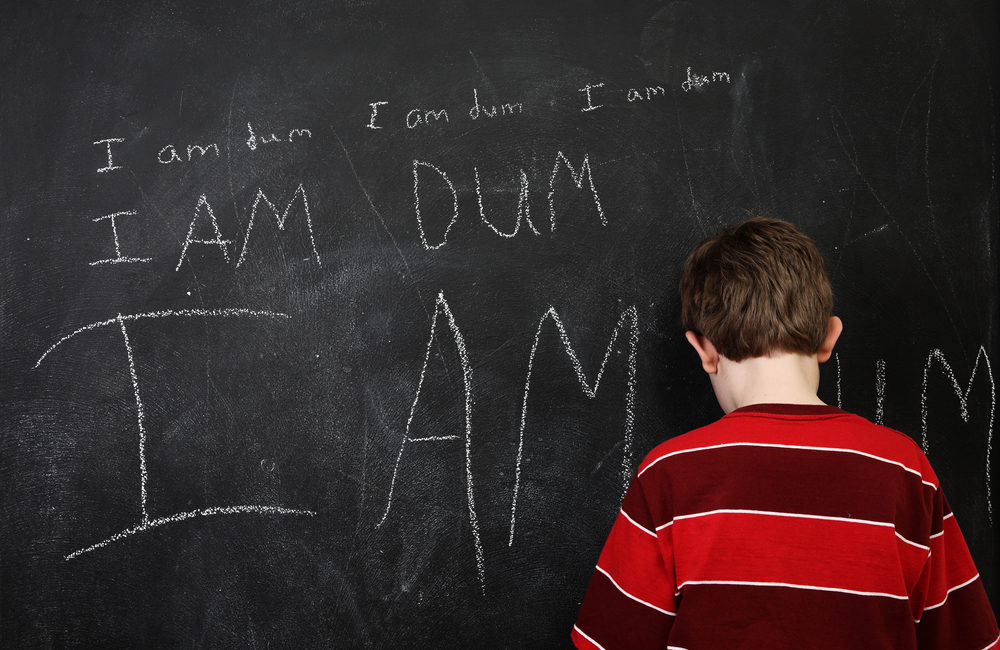 I am dum I am dum I am dum
I AM DUM
I AM UM